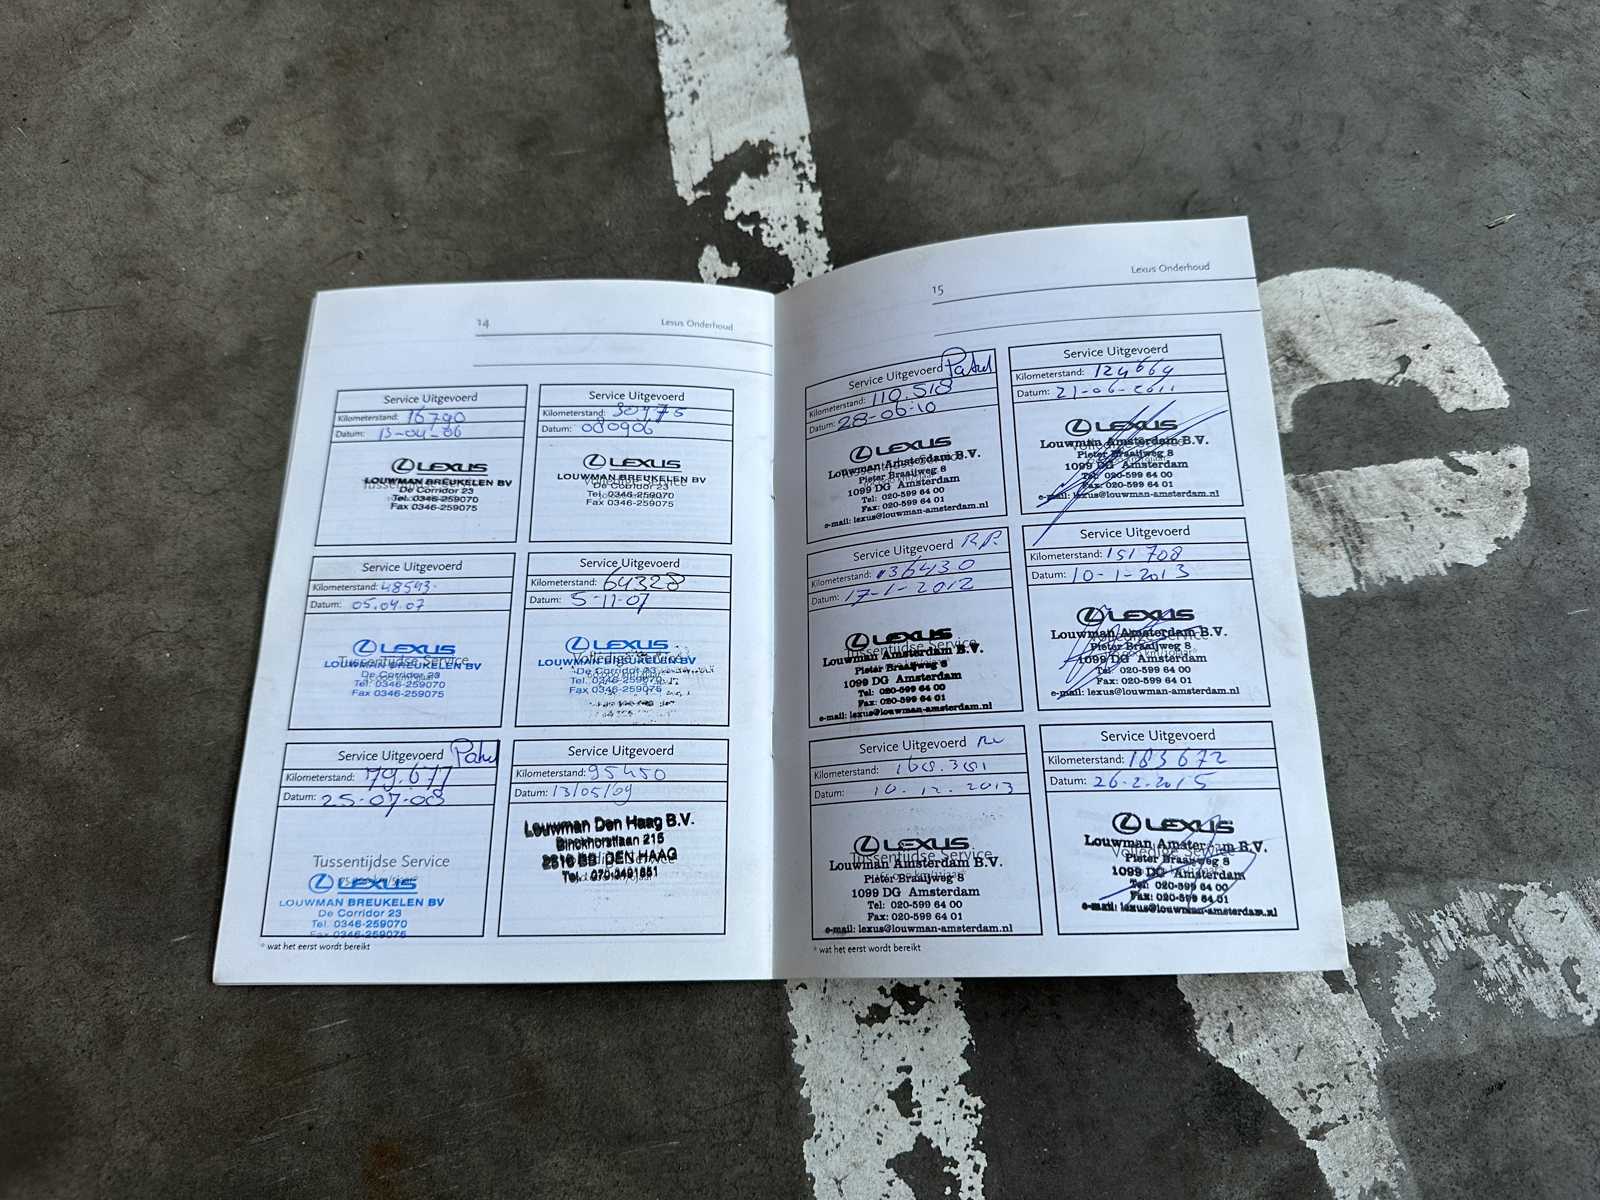 14
Lexus Onderhoud
Service Uitgevoerd
Kilometerstand: 16790
Datum: 13-04-06
LEXUS
LOUWMAN BREUKELEN BV
De Corridor 23
Tel. 0346-259070
Fax 0346-259075
Service Uitgevoerd
Kilometerstand: 30975
Datum: 080906
LEXUS
LOUWMAN BREUKELEN BV
De Corridor 23
Tel. 0346-259070
Fax 0346-259075
Service Uitgevoerd
Kilometerstand: 48593
Datum: 05.04.07
LEXUS
Tussentijdse Service
LOUWMAN BREUKELEN BV
De Corridor 23
Tel. 0346-259070
Fax 0346-259075
Service Uitgevoerd
Kilometerstand: 64328
Datum: 5-11-07
LEXUS
LOUWMAN BREUKELEN BV
De Corridor 23
Tel. 0346-259070
Fax 0346-259075
Service Uitgevoerd
Kilometerstand: 79.677
Datum: 25-07-08
Tussentijdse Service
LEXUS
LOUWMAN BREUKELEN BV
De Corridor 23
Tel. 0346-259070
Fax 0346-259075
Service Uitgevoerd
Kilometerstand: 95450
Datum: 13/05/09
Louwman Den Haag B.V.
Binckhorstlaan 215
2516 BB DEN HAAG
Tel. 070-3491851
° wat het eerst wordt bereikt
15
Lexus Onderhoud
Service Uitgevoerd
Kilometerstand: 110.518
Datum: 28-06-10
LEXUS
Louwman Amsterdam B.V.
Pieter Braaijweg 8
1099 DG Amsterdam
Tel: 020-599 64 00
Fax: 020-599 64 01
e-mail: lexus@louwman-amsterdam.nl
Service Uitgevoerd
Kilometerstand: 124664
Datum: 21-06-2011
LEXUS
Louwman Amsterdam B.V.
Pieter Braaijweg 8
1099 DG Amsterdam
Tel: 020-599 64 00
Fax: 020-599 64 01
e-mail: lexus@louwman-amsterdam.nl
Service Uitgevoerd RR
Kilometerstand: 136430
Datum: 17-1-2012
LEXUS
Tussentijdse Service
Louwman Amsterdam B.V.
Pieter Braaijweg 8
1099 DG Amsterdam
Tel: 020-599 64 00
Fax: 020-599 64 01
e-mail: lexus@louwman-amsterdam.nl
Service Uitgevoerd
Kilometerstand: 151708
Datum: 10-1-2013
LEXUS
Louwman Amsterdam B.V.
Volledige Service
Pieter Braaijweg 8
1099 DG Amsterdam
Tel: 020-599 64 00
Fax: 020-599 64 01
e-mail: lexus@louwman-amsterdam.nl
Service Uitgevoerd
Kilometerstand: 168.351
Datum: 10.12.2013
LEXUS
Tussentijdse Service
Louwman Amsterdam B.V.
Pieter Braaijweg 8
1099 DG Amsterdam
Tel: 020-599 64 00
Fax: 020-599 64 01
e-mail: lexus@louwman-amsterdam.nl
Service Uitgevoerd
Kilometerstand: 183672
Datum: 26-2-2015
LEXUS
Louwman Amsterdam B.V.
Volledige Service
Pieter Braaijweg 8
1099 DG Amsterdam
Tel: 020-599 64 00
Fax: 020-599 64 01
e-mail: lexus@louwman-amsterdam.nl
° wat het eerst wordt bereikt